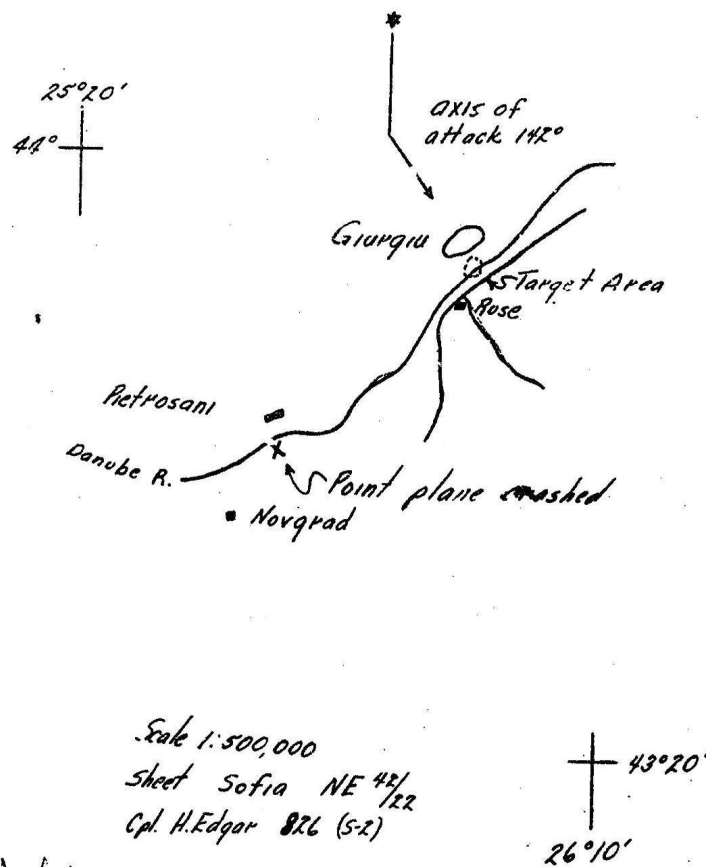 25°20'
44°
axis of
attack 142°
Giurgiu
Target Area
Ruse
Pietrosani
Danube R.
Point plane crashed
Novgrad
Scale 1:500,000
Sheet Sofia NE 42/22
Cpl. H. Edgar 826 (S-2)
43°20'
26°10'